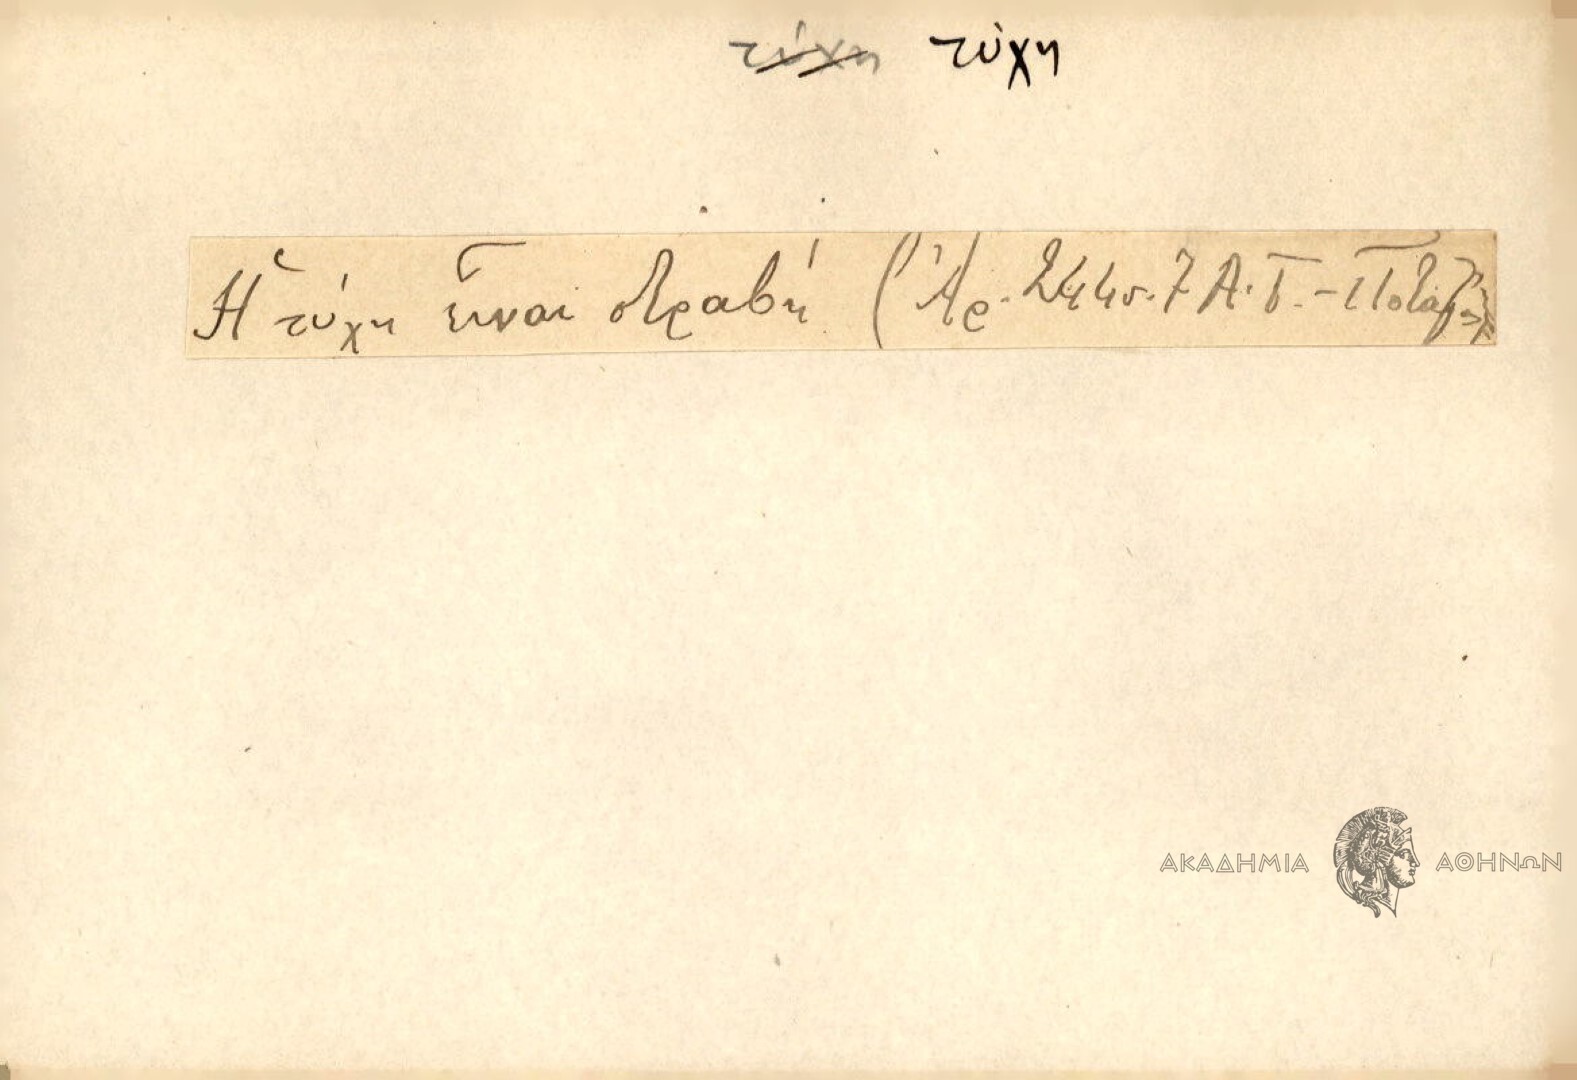 τύχη τύχη
Ἡ τύχη εἶναι στραβή (Ἀρ. 244σ. 7 Α. Γ. -
ΑΚΑΔΗΜΙΑ ΑΘΗΝΩΝ